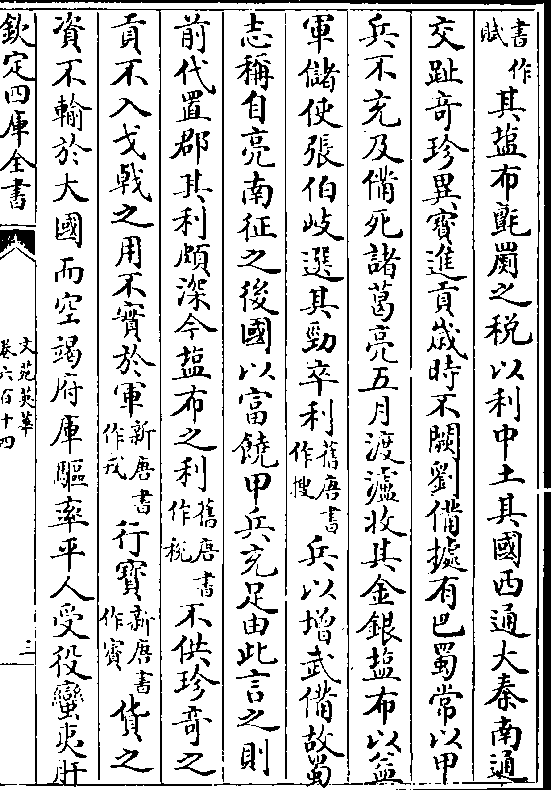 書作賦其鹽布氈罽之稅以利中土其國西通大秦南通
交趾奇珍異寳進貢歳時不闕劉備據有巴蜀常以甲
兵不充及備死諸葛亮五月渡瀘收其金銀鹽布以益
軍儲使張伯岐選其勁卒利舊唐書作搜兵以增武備故蜀
志稱自亮南征之後國以富饒甲兵充足由此言之則
前代置郡其利頗深今鹽布之利舊唐書作稅不供珍奇之
貢不入戈㦸之用不實於軍新唐書作戎行寳新唐書作賓貨之
資不輸於大國而空竭府庫驅率平人受役蠻夷肝
欽定四庫全書
文苑英華
卷六百十四
三